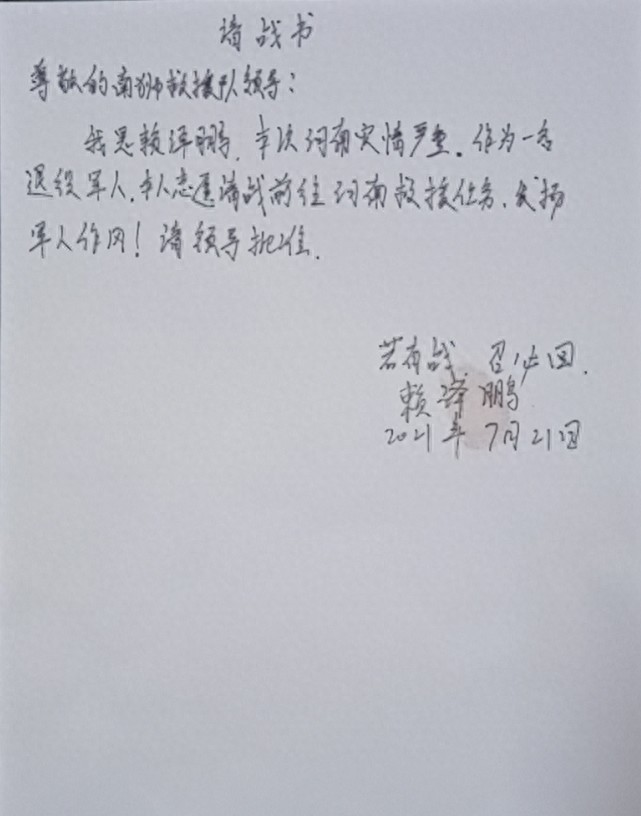 请战书
尊敬的南狮救援队领导:
我是赖泽鹏,本次河南灾情严重。作为一名
退役军人,本人志愿请战前往河南救援任务,发扬
军人作风!请领导批准。
若有战 召必回。
赖泽鹏
2021年7月21日